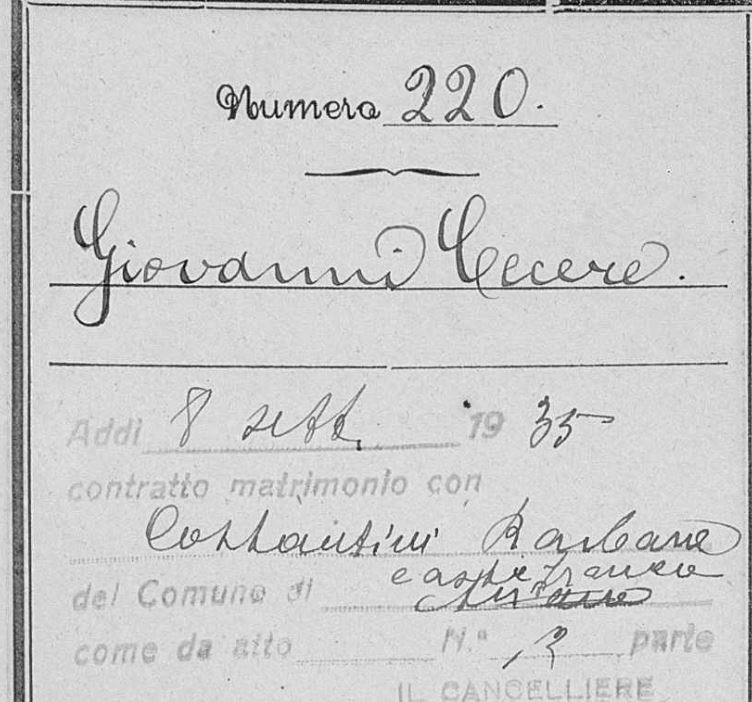 Numero 220.
Giovanni Cecere.
Addì 8 sett. 1935
contratto matrimonio con
Costantini Barbara
del Comune di
come da atto N.° parte
IL CANCELLIERE